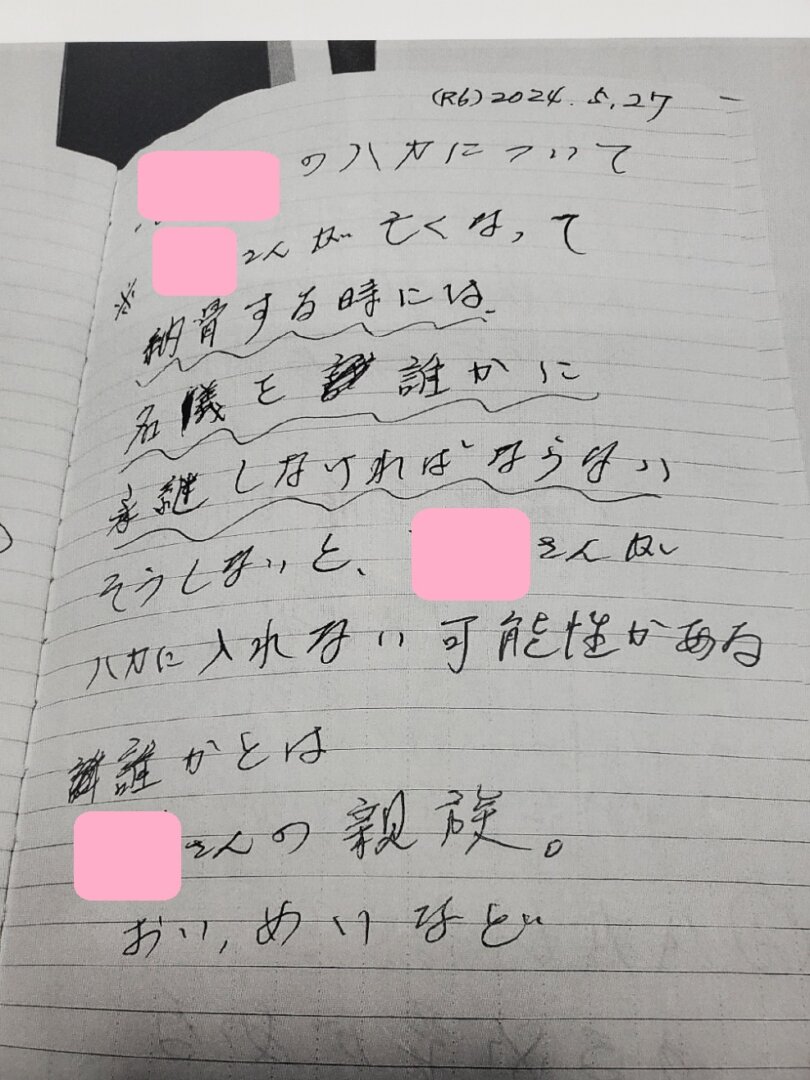 (R6) 2024. 5. 27
のハカについて
※ さんが亡くなって
納骨する時には、
名儀を 誰かに
承継しなければならない
そうしないと、 さんが
ハカに入れない可能性がある
誰かとは
さんの親族。
おい, めいなど